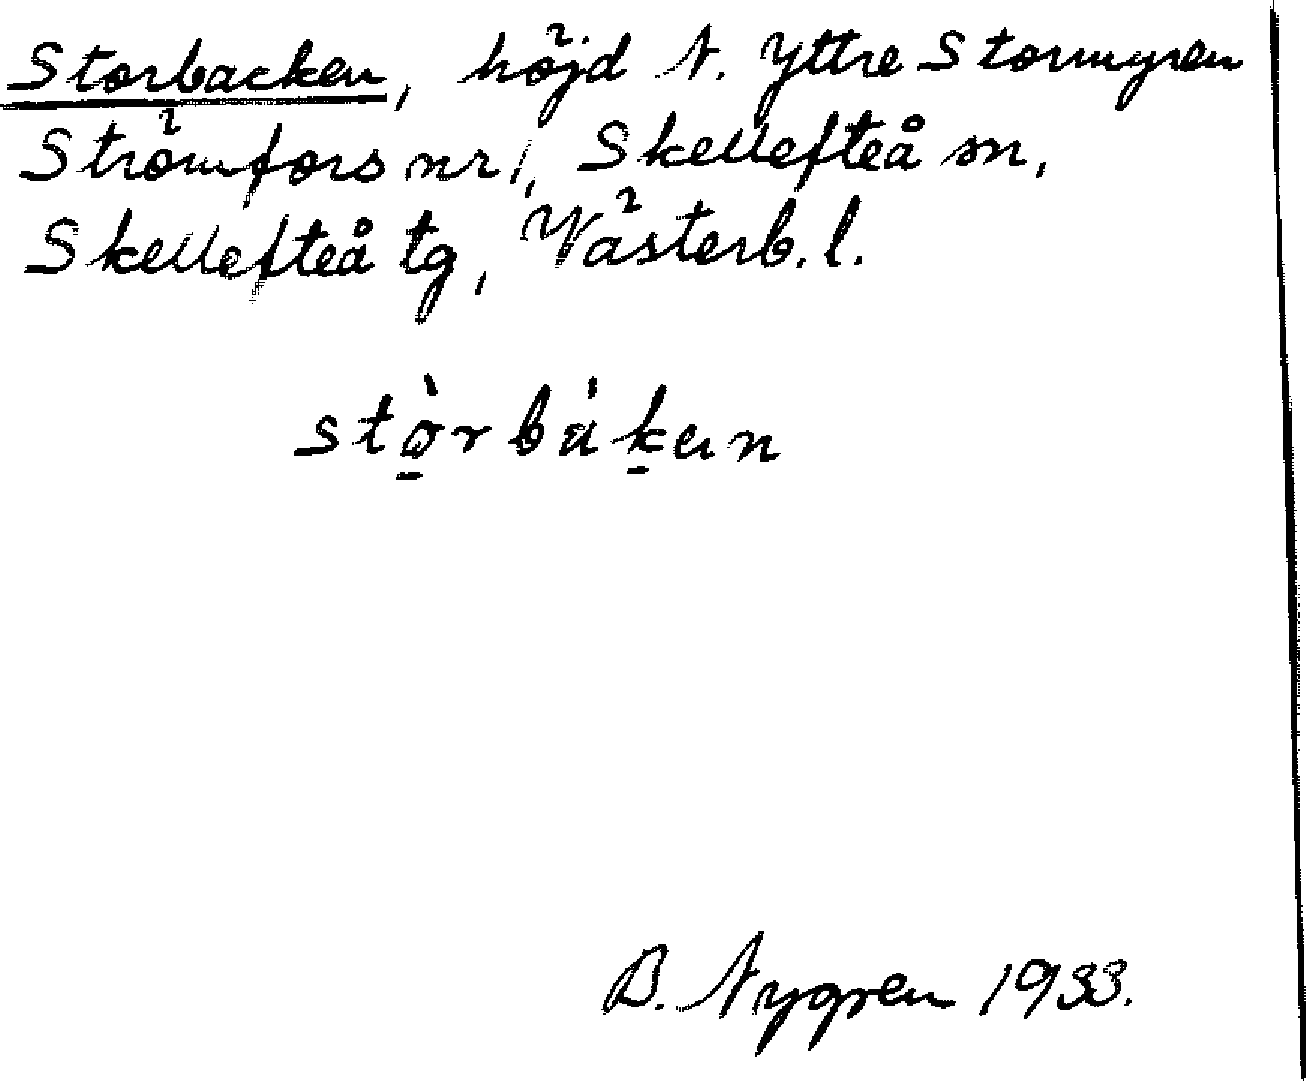 Storbacken, höjd N. Yttre Stormyren
Strömfors nr 1, Skellefteå sn,
Skellefteå tg, Västerb. l.
stò̠rbák̠ən
B. Nygren 1933.